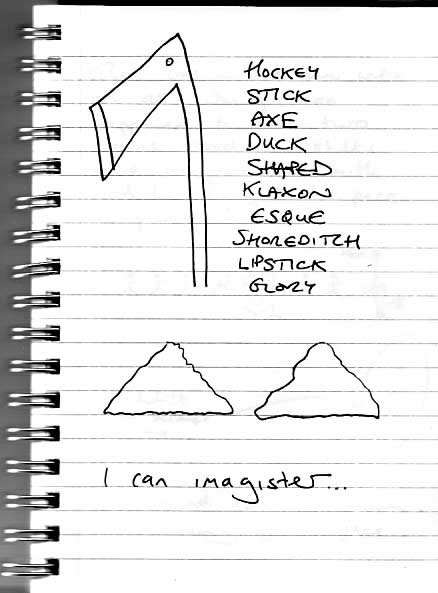 HOCKEY
STICK
AXE
DUCK
SHAPED
KLAXON
ESQUE
SHOREDITCH
LIPSTICK
GLORY
I can imagister...